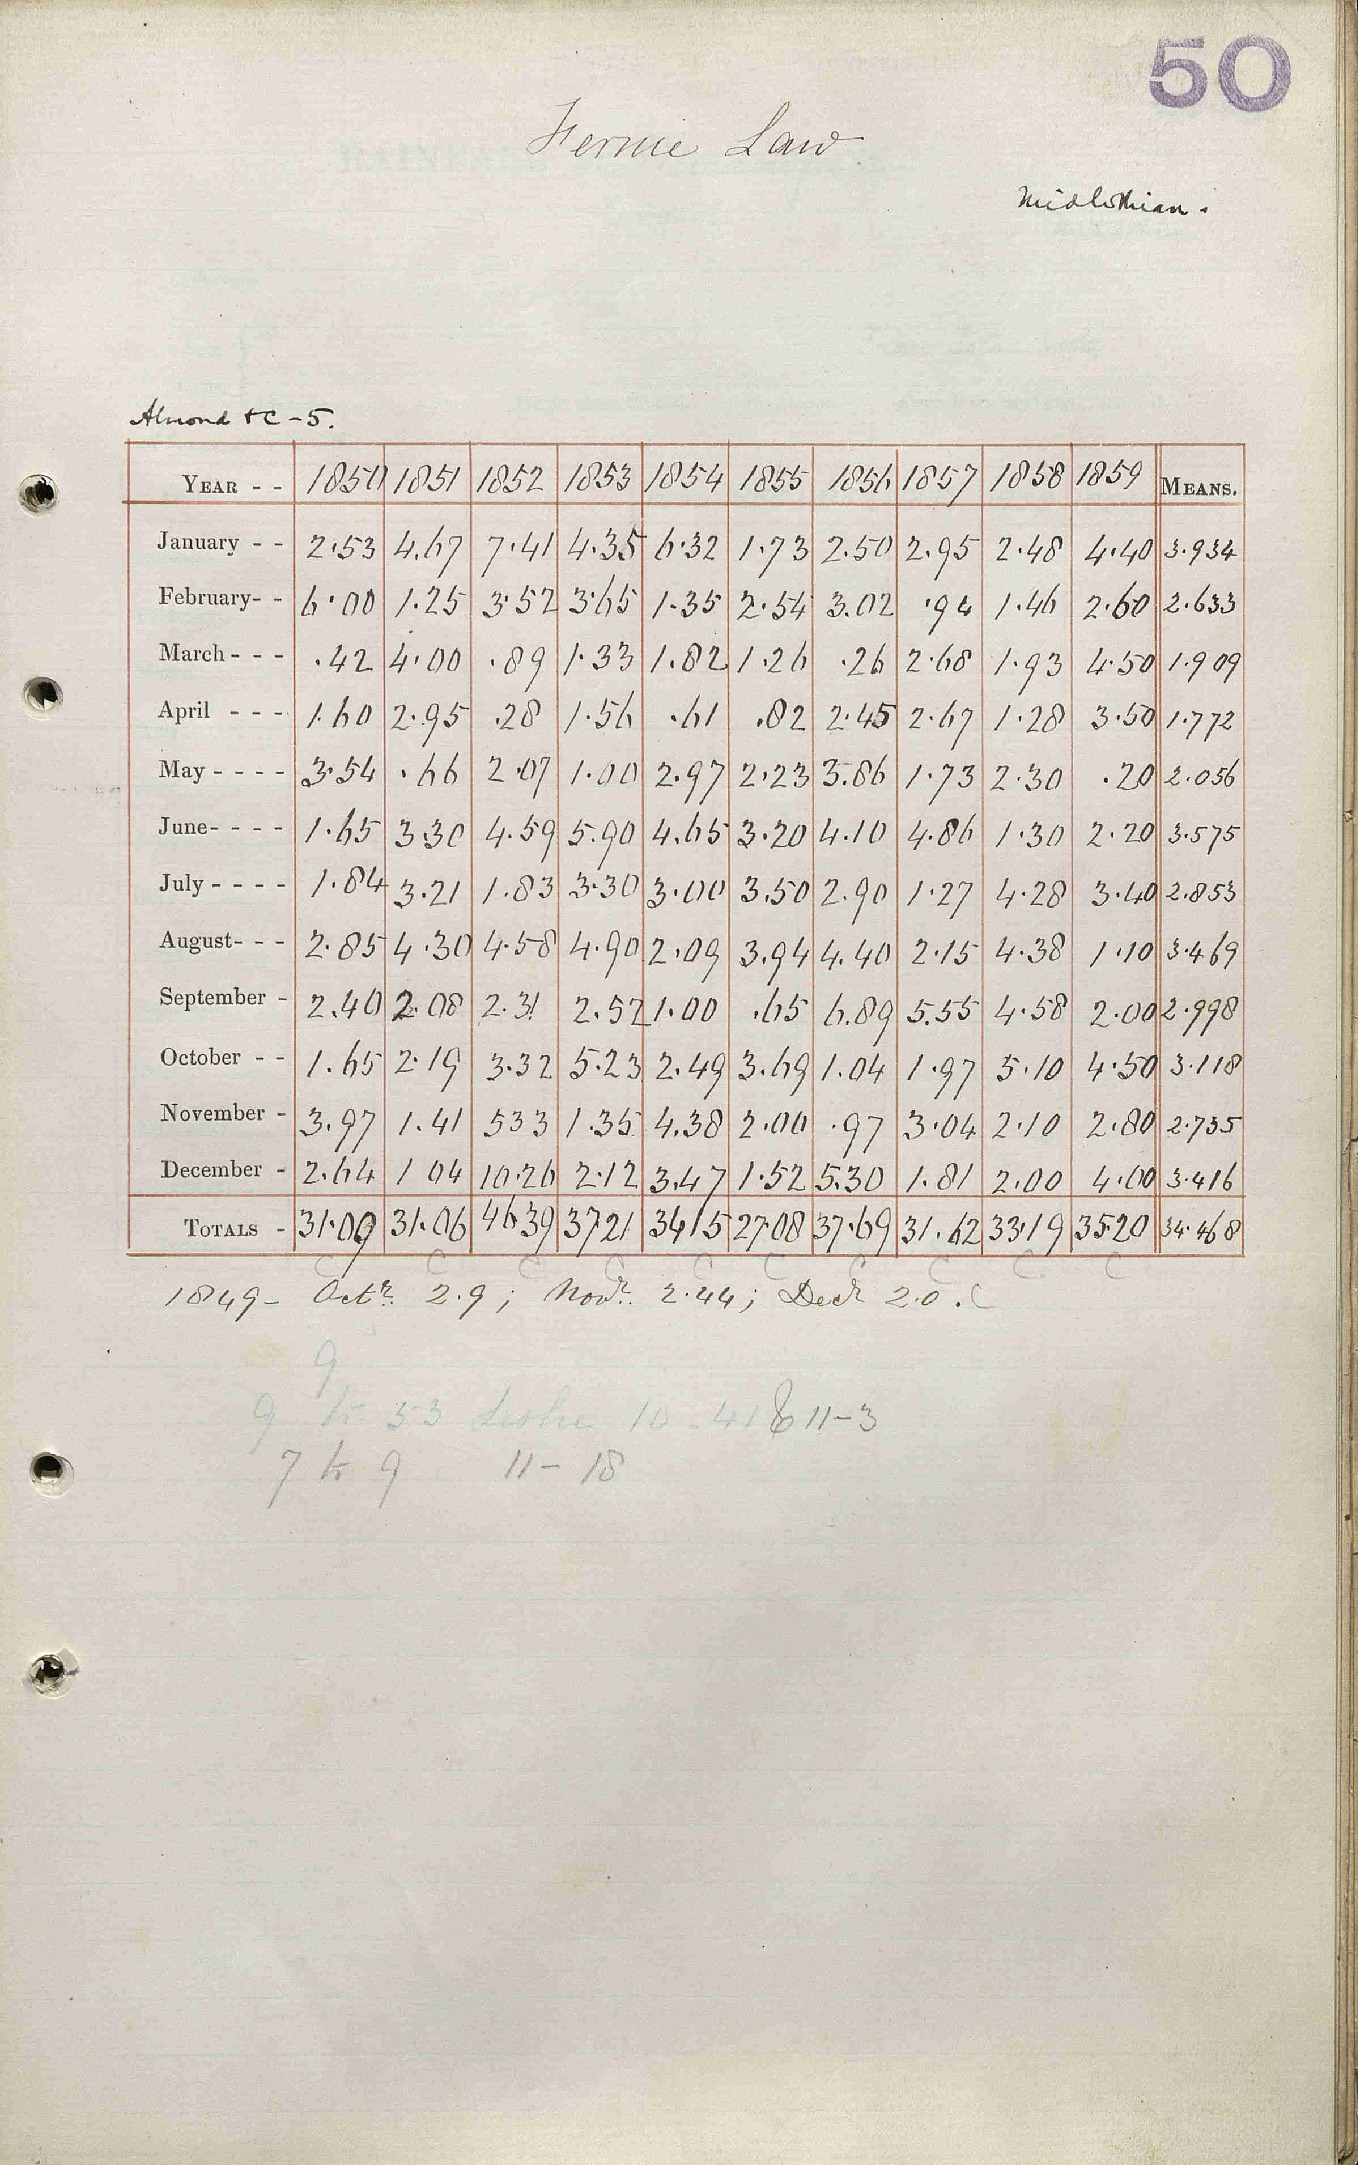 50
Fernie Law
Midlothian.
Almond & C - 5.
YEAR - - 1850 1851 1852 1853 1854 1855 1856 1857 1858 1859 MEANS.
January - - 2.53 4.67 7.41 4.35 6.32 1.73 2.50 2.95 2.48 4.40 3.934
February- - 6.00 1.25 3.52 3.65 1.35 2.54 3.02 .94 1.46 2.60 2.633
March - - - .42 4.00 .89 1.33 1.82 1.26 .26 2.68 1.93 4.50 1.909
April - - - 1.60 2.95 .28 1.56 .61 .82 2.45 2.67 1.28 3.50 1.772
May - - - - 3.54 .66 2.07 1.00 2.97 2.23 3.86 1.73 2.30 .20 2.056
June- - - - 1.65 3.30 4.59 5.90 4.65 3.20 4.10 4.86 1.30 2.20 3.575
July - - - - 1.84 3.21 1.83 3.30 3.00 3.50 2.90 1.27 4.28 3.40 2.853
August- - - 2.85 4.30 4.58 4.90 2.09 3.94 4.40 2.15 4.38 1.10 3.469
September - 2.40 2.08 2.31 2.52 1.00 .65 6.89 5.55 4.58 2.00 2.998
October - - 1.65 2.19 3.32 5.23 2.49 3.69 1.04 1.97 5.10 4.50 3.118
November - 3.97 1.41 533 1.35 4.38 2.00 .97 3.04 2.10 2.80 2.735
December - 2.64 1 04 10.26 2.12 3.47 1.52 5.30 1.81 2.00 4.00 3.416
TOTALS - 31.09 31.06 4639 3721 3415 27.08 37.69 31.62 33.19 35.20 34.468
C C C C C C C C C C
1849- Octr. 2.9; Novr. 2.44; Decr 2.0. C
9
9 to 53 Leslie 10 - 41 & 11-3
7 to 9 11-18